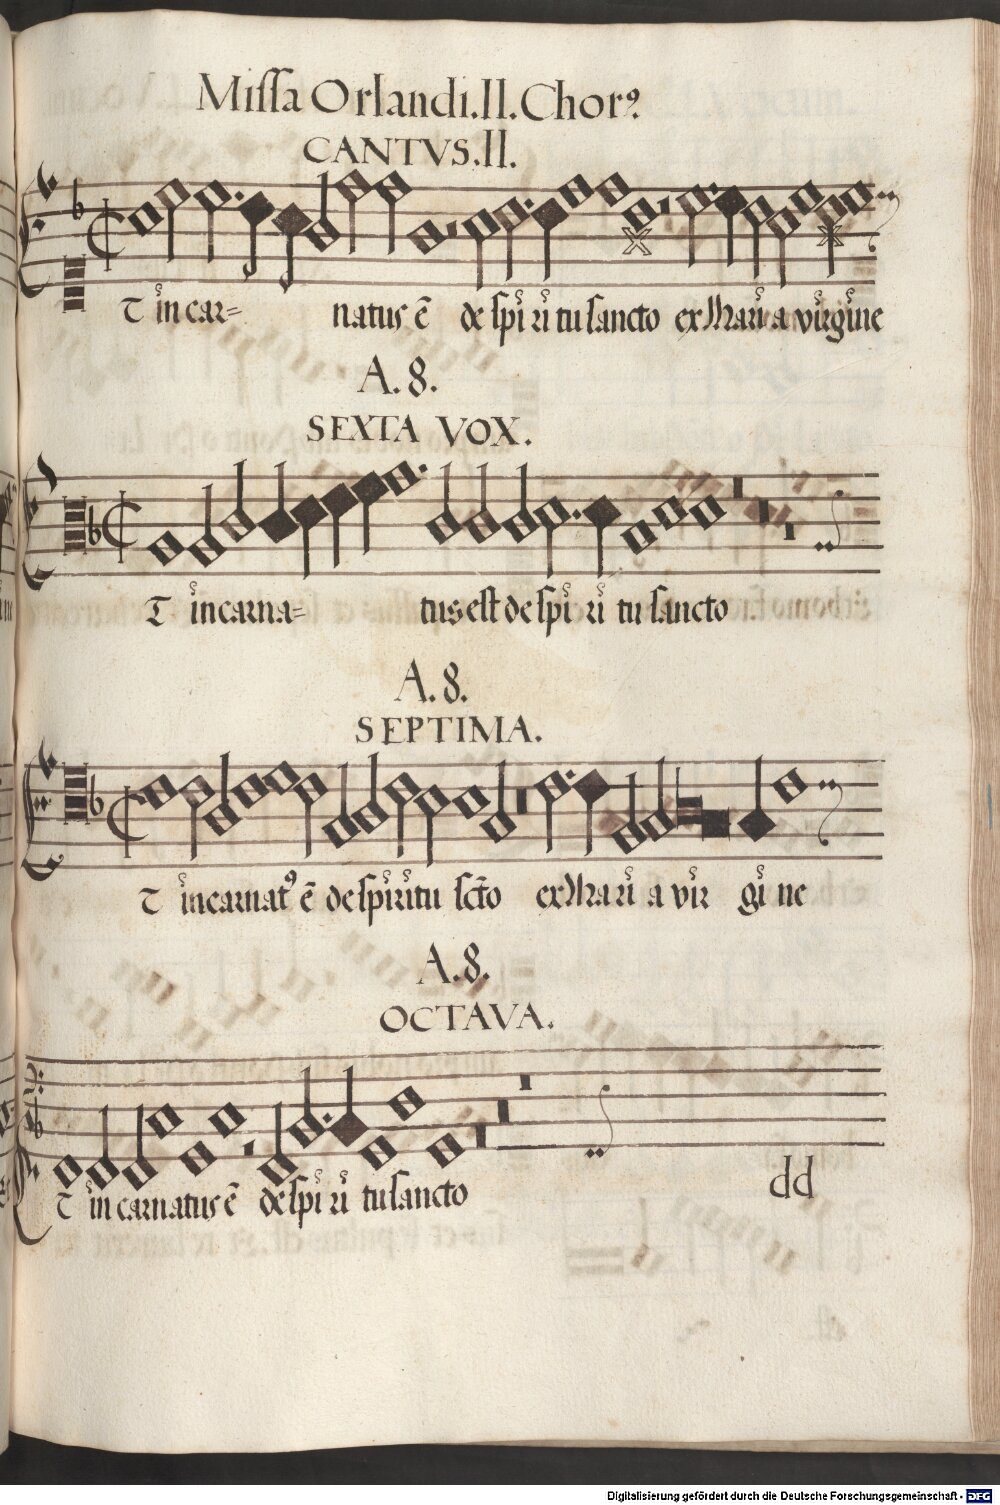 Missa Orlandi. II. Chorꝰ
CANTVS. II.
T incar= natus ē de spiritu sancto ex Maria virgine
A. 8.
SEXTA VOX.
T incarna= tus est de spiritu sancto
A. 8.
SEPTIMA.
T incarnatꝰ ē de spiritu sc̄to ex Maria virgine
A. 8.
OCTAVA.
T incarnatus ē de spiritu sancto
dd
Digitalisierung gefördert durch die Deutsche Forschungsgemeinschaft - DFG